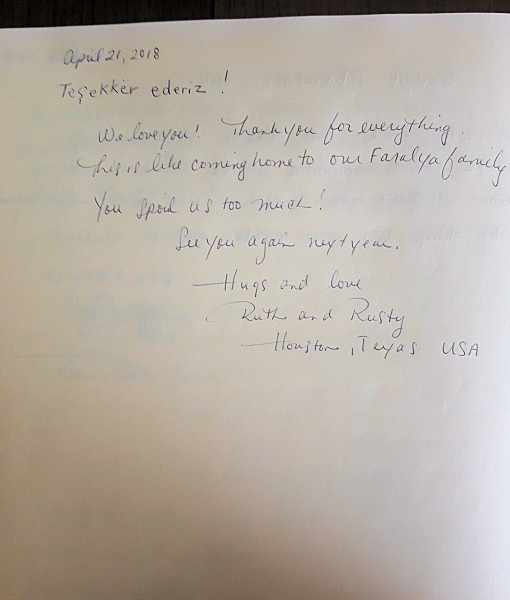 April 21, 2018
Teşekkër ederiz!
We love you! Thank you for everything.
This is like coming home to our Faralya family
You spoil us too much!
See you again next year.
—Hugs and love
Ruth and Rusty
—Houston, Texas USA